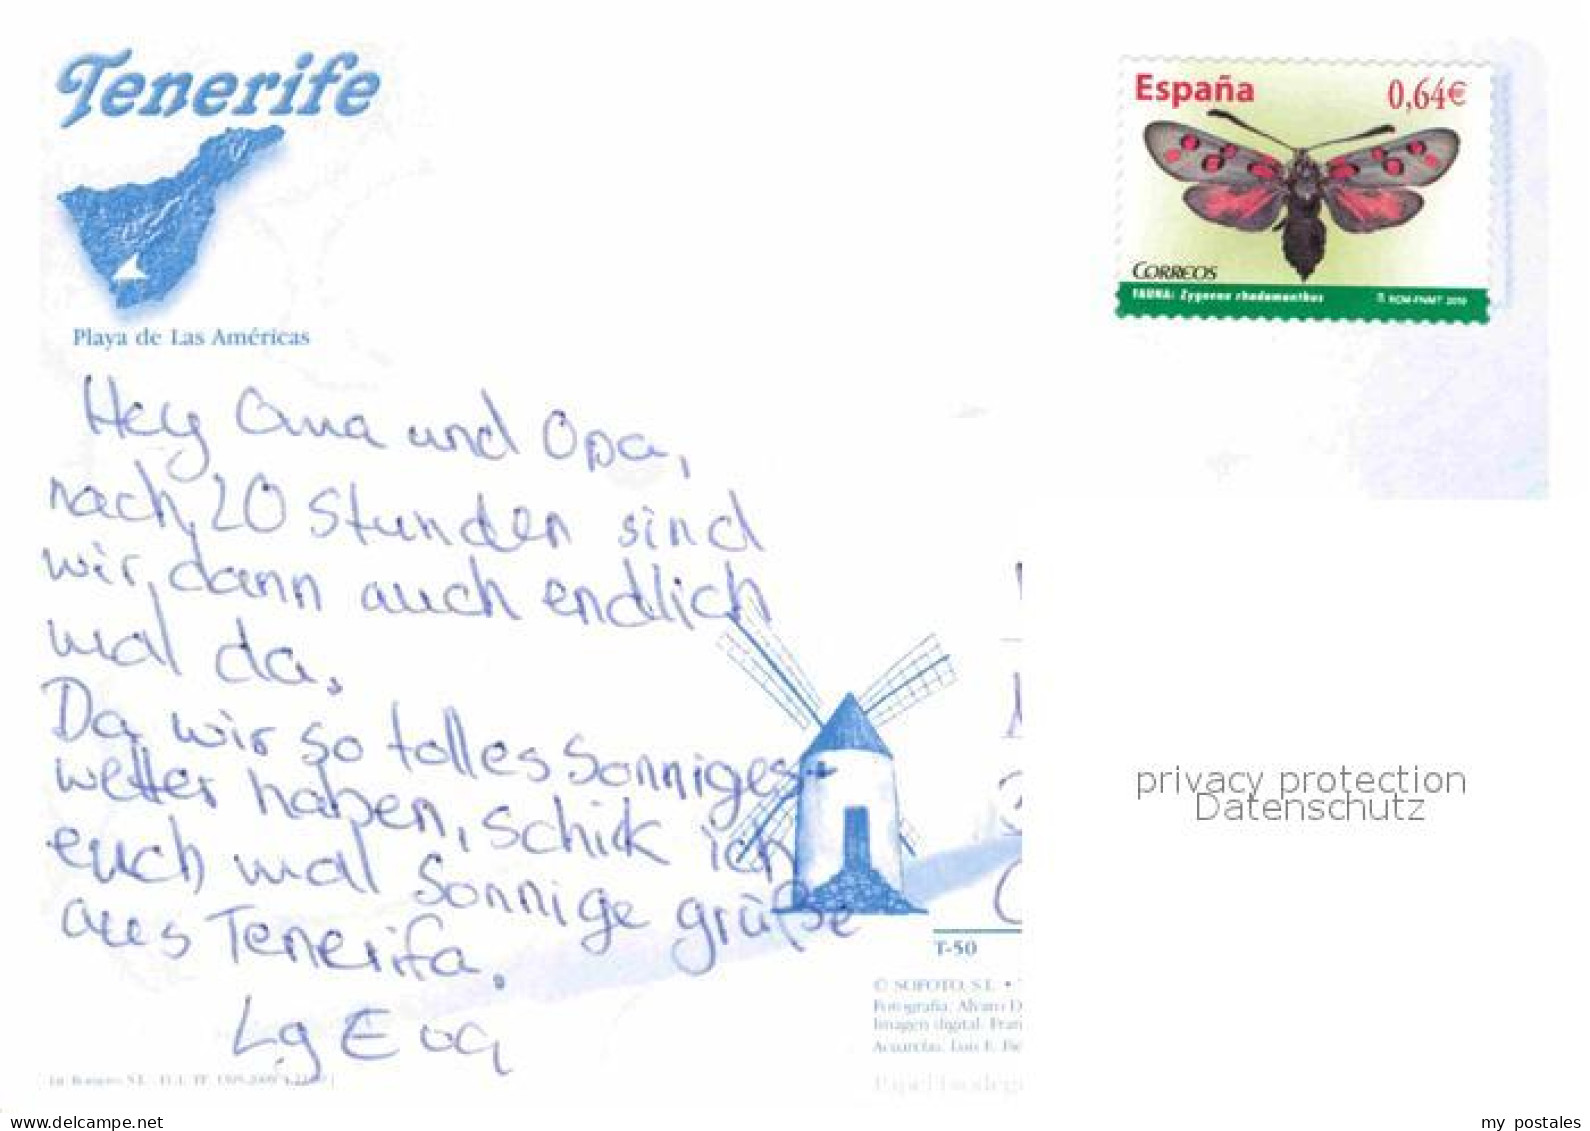 Tenerife
España 0,64€
CORREOS
FAUNA: Zygaena rhadamanthus © RCM-FNMT 2010
Playa de Las Américas
Hey Oma und Opa,
nach 20 Stunden sind
wir dann auch endlich
mal da.
Da wir so tolles Sonniges
wetter haben, schick ich
euch mal Sonnige grüße
aus Tenerifa.
Lg Eva
privacy protection
Datenschutz
T-50
© SOFOTO, S.L. •
Fotografía: Alvaro D
Imagen digital: Fran
Acuarelas: Luis E. Fe
my postales